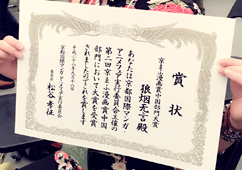 賞状
京まふ漫画賞中国部門大賞
狼烟无言殿
あなたは京都国際マンガ
アニメフェア実行委員会主催の
第二回京まふ漫画賞中国
部門において大賞を受賞
されましたのでこれを賞します
京都国際マンガ・アニメフェア実行委員会
松谷孝征